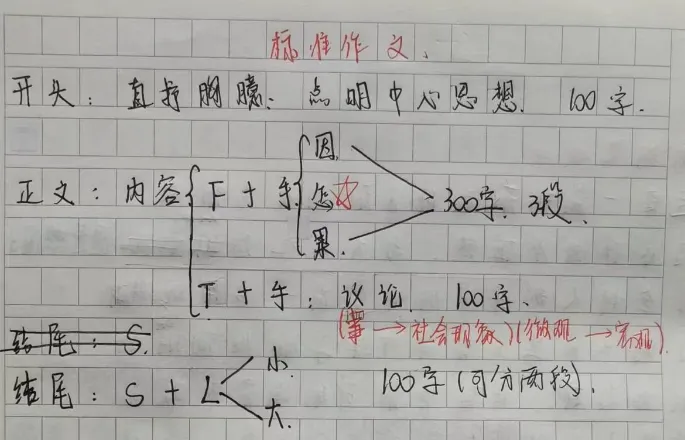 标准作文.
开头: 直抒胸臆. 点明中心思想. 100字.
因
正文: 内容 F + 手 怎 300字. 3段.
果.
T + 手: 议论. 100字.
(事 → 社会现象)(微观 → 宏观).
结尾: S.
小.
结尾: S + L 100字(可分两段).
大.